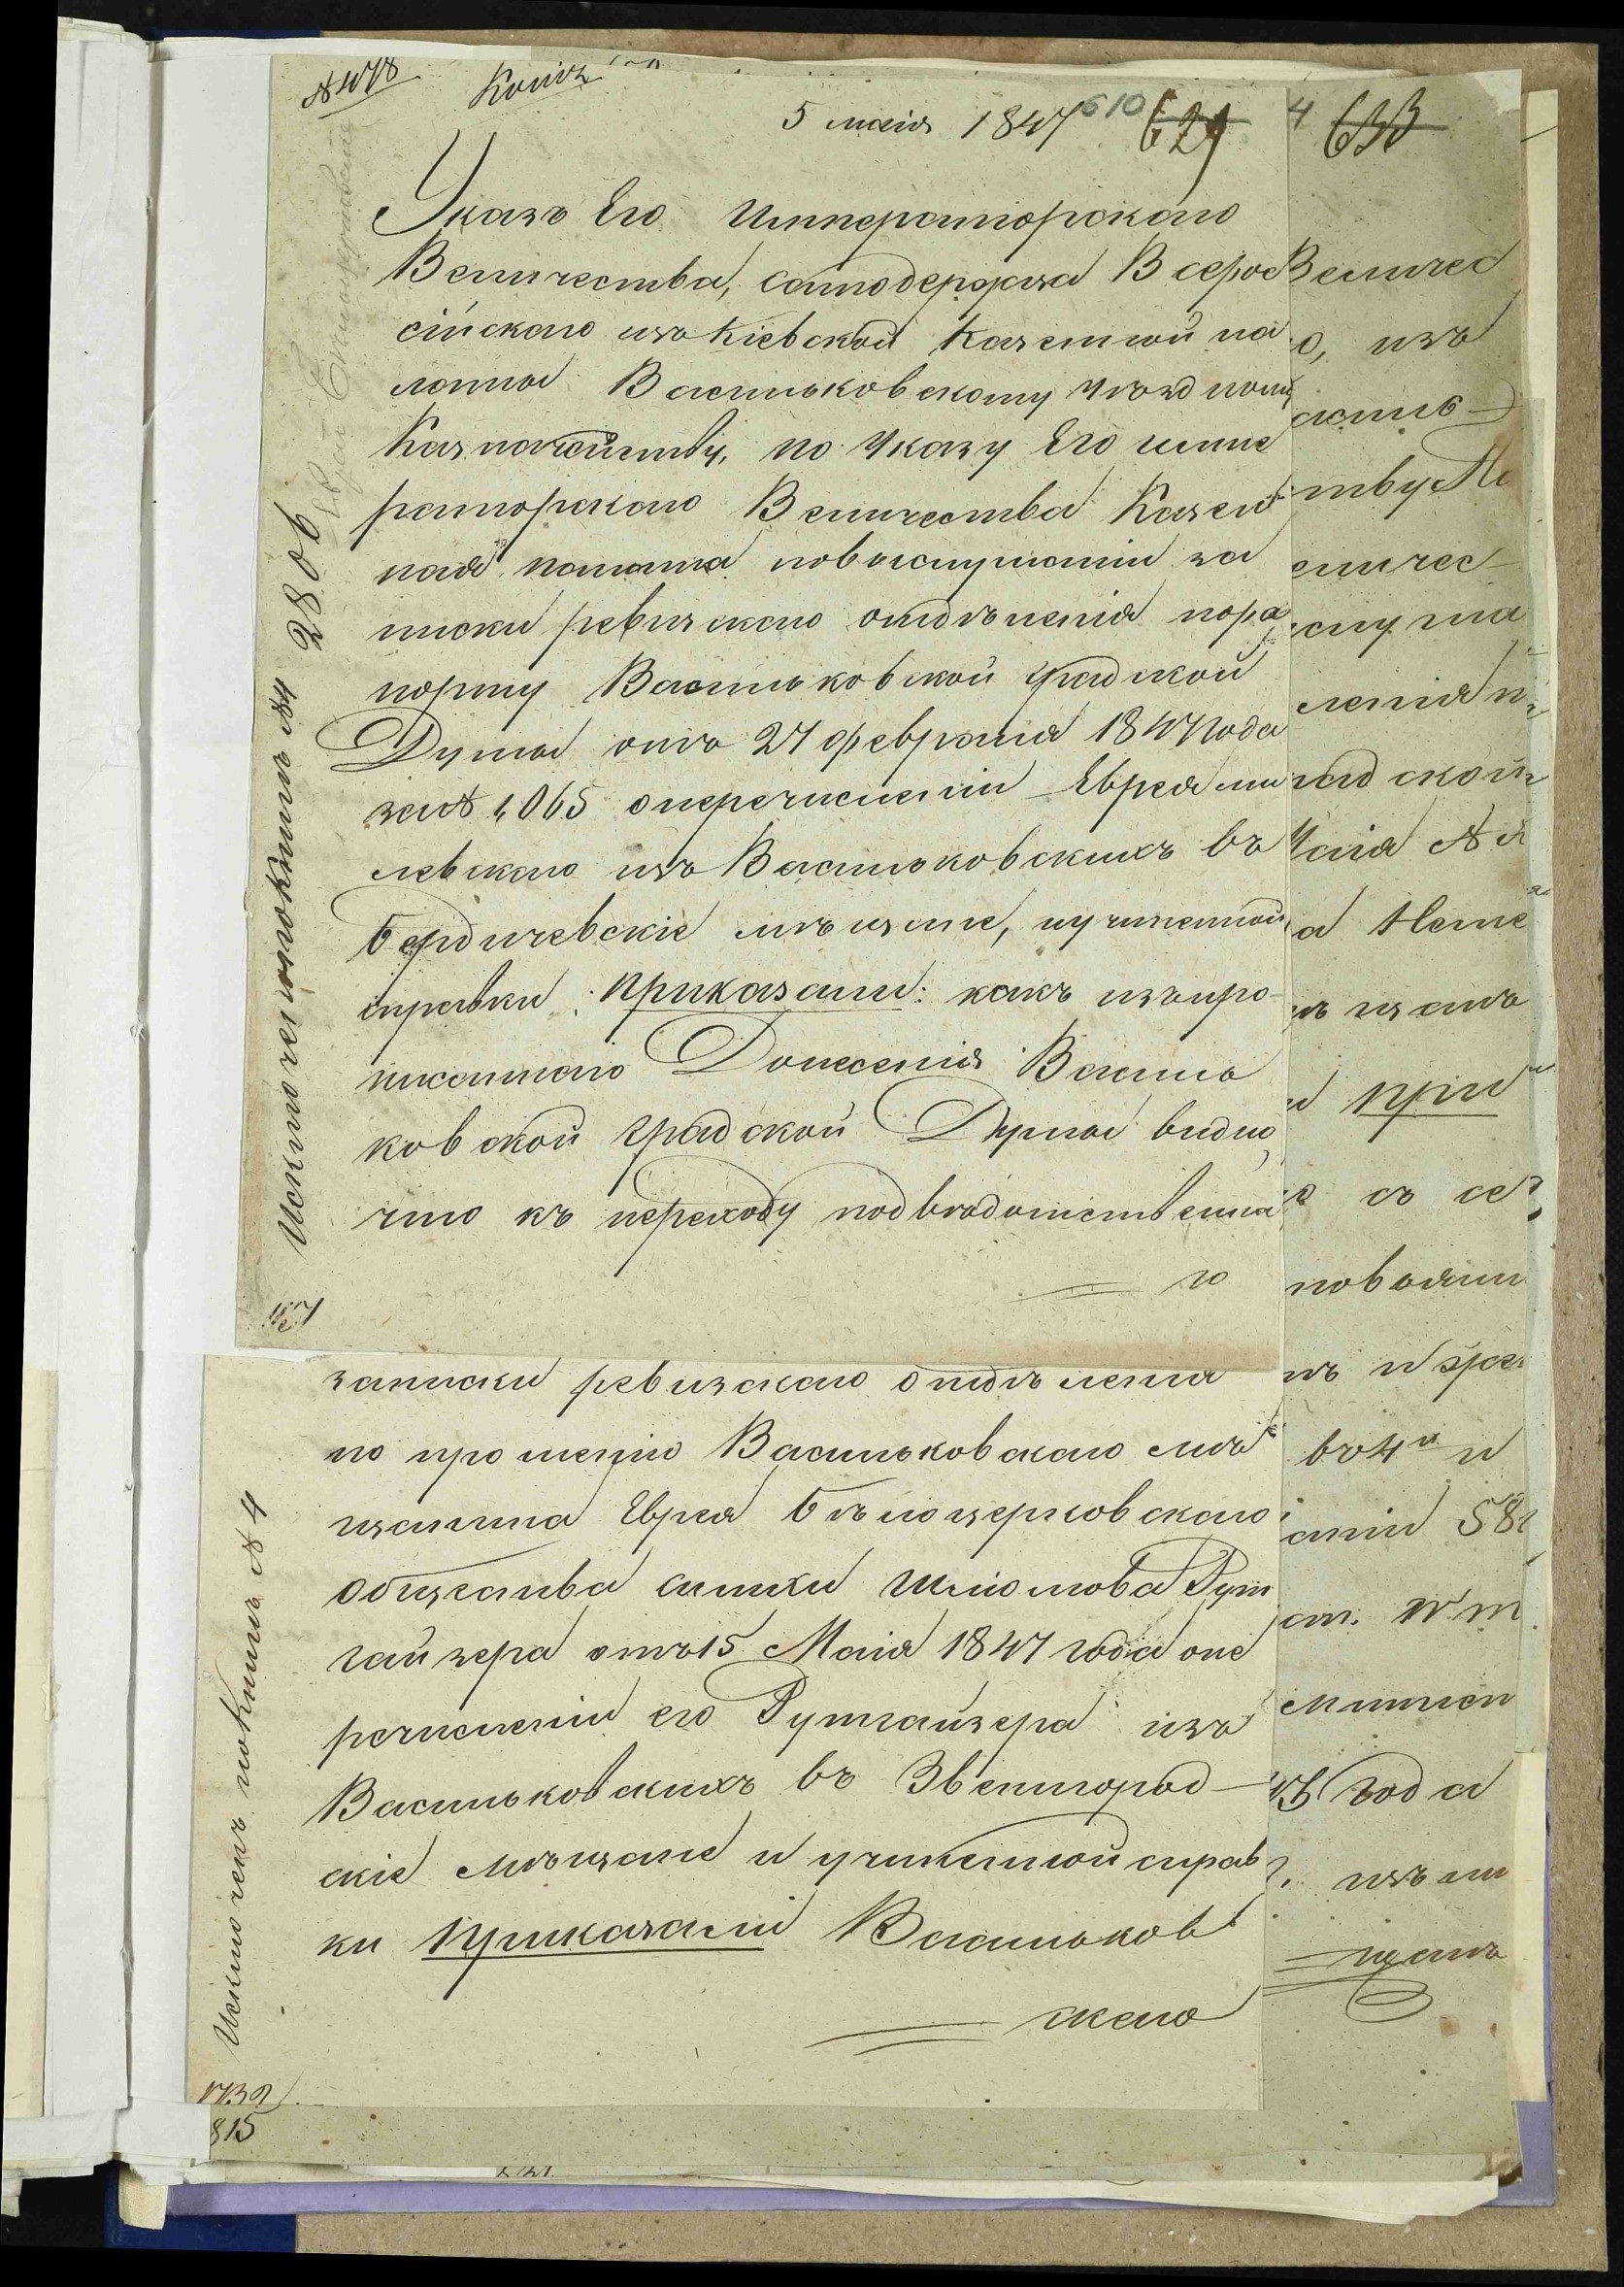 №478
Копія
5 маія 1847
610 629
4 633
Указъ Его Императорскаго
Величества, Самодержца Всерос
сійскаго изъ Кіевской Казенной па
латы Васильковскому Уѣздному
Казначейству, по Указу Его Импе
раторскаго Величества Казен
ная палата по выслушаніи за
писки ревизскаго отдѣленія пора
порту Васильковской градской
Думы отъ 27 февраля 1847 года
за № 1065 о перечисленіи Еврея ми
левскаго изъ Васильковскихъ въ
Бердичевскіе мѣщане, и учиненной
справки: приказали: какъ изъ про
писаннаго Донесенія Василь
ковской градской Думы видно,
что къ переходу подвѣдомственна
го
Исключенъ по книгѣ №4 2806
записки ревизскаго отдѣленія
по прошенію Васильковскаго мѣ
щанина Еврея Бѣлоцерковскаго
общества Симхи Шліомова Рут
гайзера отъ 15 Маія 1847 года о пе
речисленіи его Рутгайзера изъ
Васильковскихъ въ Звенигород
скіе мѣщане и учиненной справ
ки приказали Васильков
скаго
Исключенъ по книгѣ №4
1739
815
Величес
о, изъ
силь
тву По
еличес
слуша
ленія п
градской
Маія №
а Неме
ъ изъ
и при
съ се
повѣ
въ 4й и
аніи 58
ст. IV т
45 года
изъ
щанъ